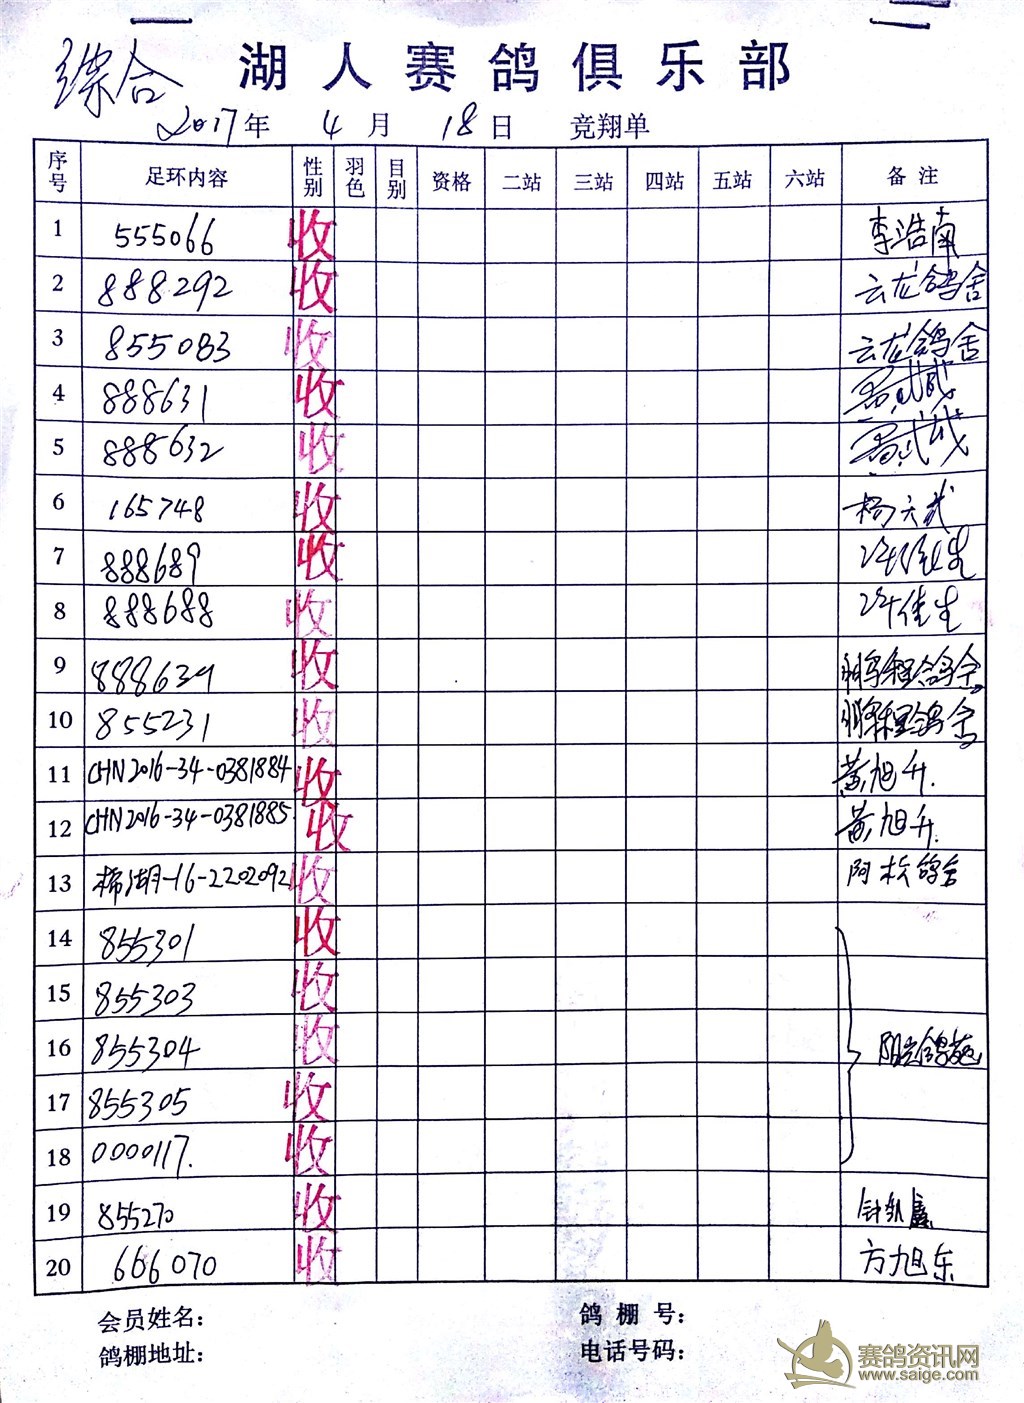 综合 湖人赛鸽俱乐部
2017年 4月 18日 竞翔单
序号 足环内容 性别 羽色 目别 资格 二站 三站 四站 五站 六站 备注
1 555066 收 李浩南
2 888292 收 云龙鸽舍
3 855083 收 云龙鸽舍
4 888631 收
5 888632 收
6 165748 收 杨天武
7 888689 收
8 888688 收 佳生
9 888639 收 鹏程鸽舍
10 855231 收 鹏程鸽舍
11 CHN2016-34-0381884 收 黄旭升.
12 CHN2016-34-0381885. 收 黄旭升.
13 湖-16-2202092 收 阿松鸽舍
14 855301 收
15 855303 收
16 855304 收 阳光鸽苑
17 855305 收
18 0000117. 收
19 855270 收
20 666070 收 方旭东
会员姓名： 鸽棚号：
鸽棚地址： 电话号码：
赛鸽资讯网
www.saige.com